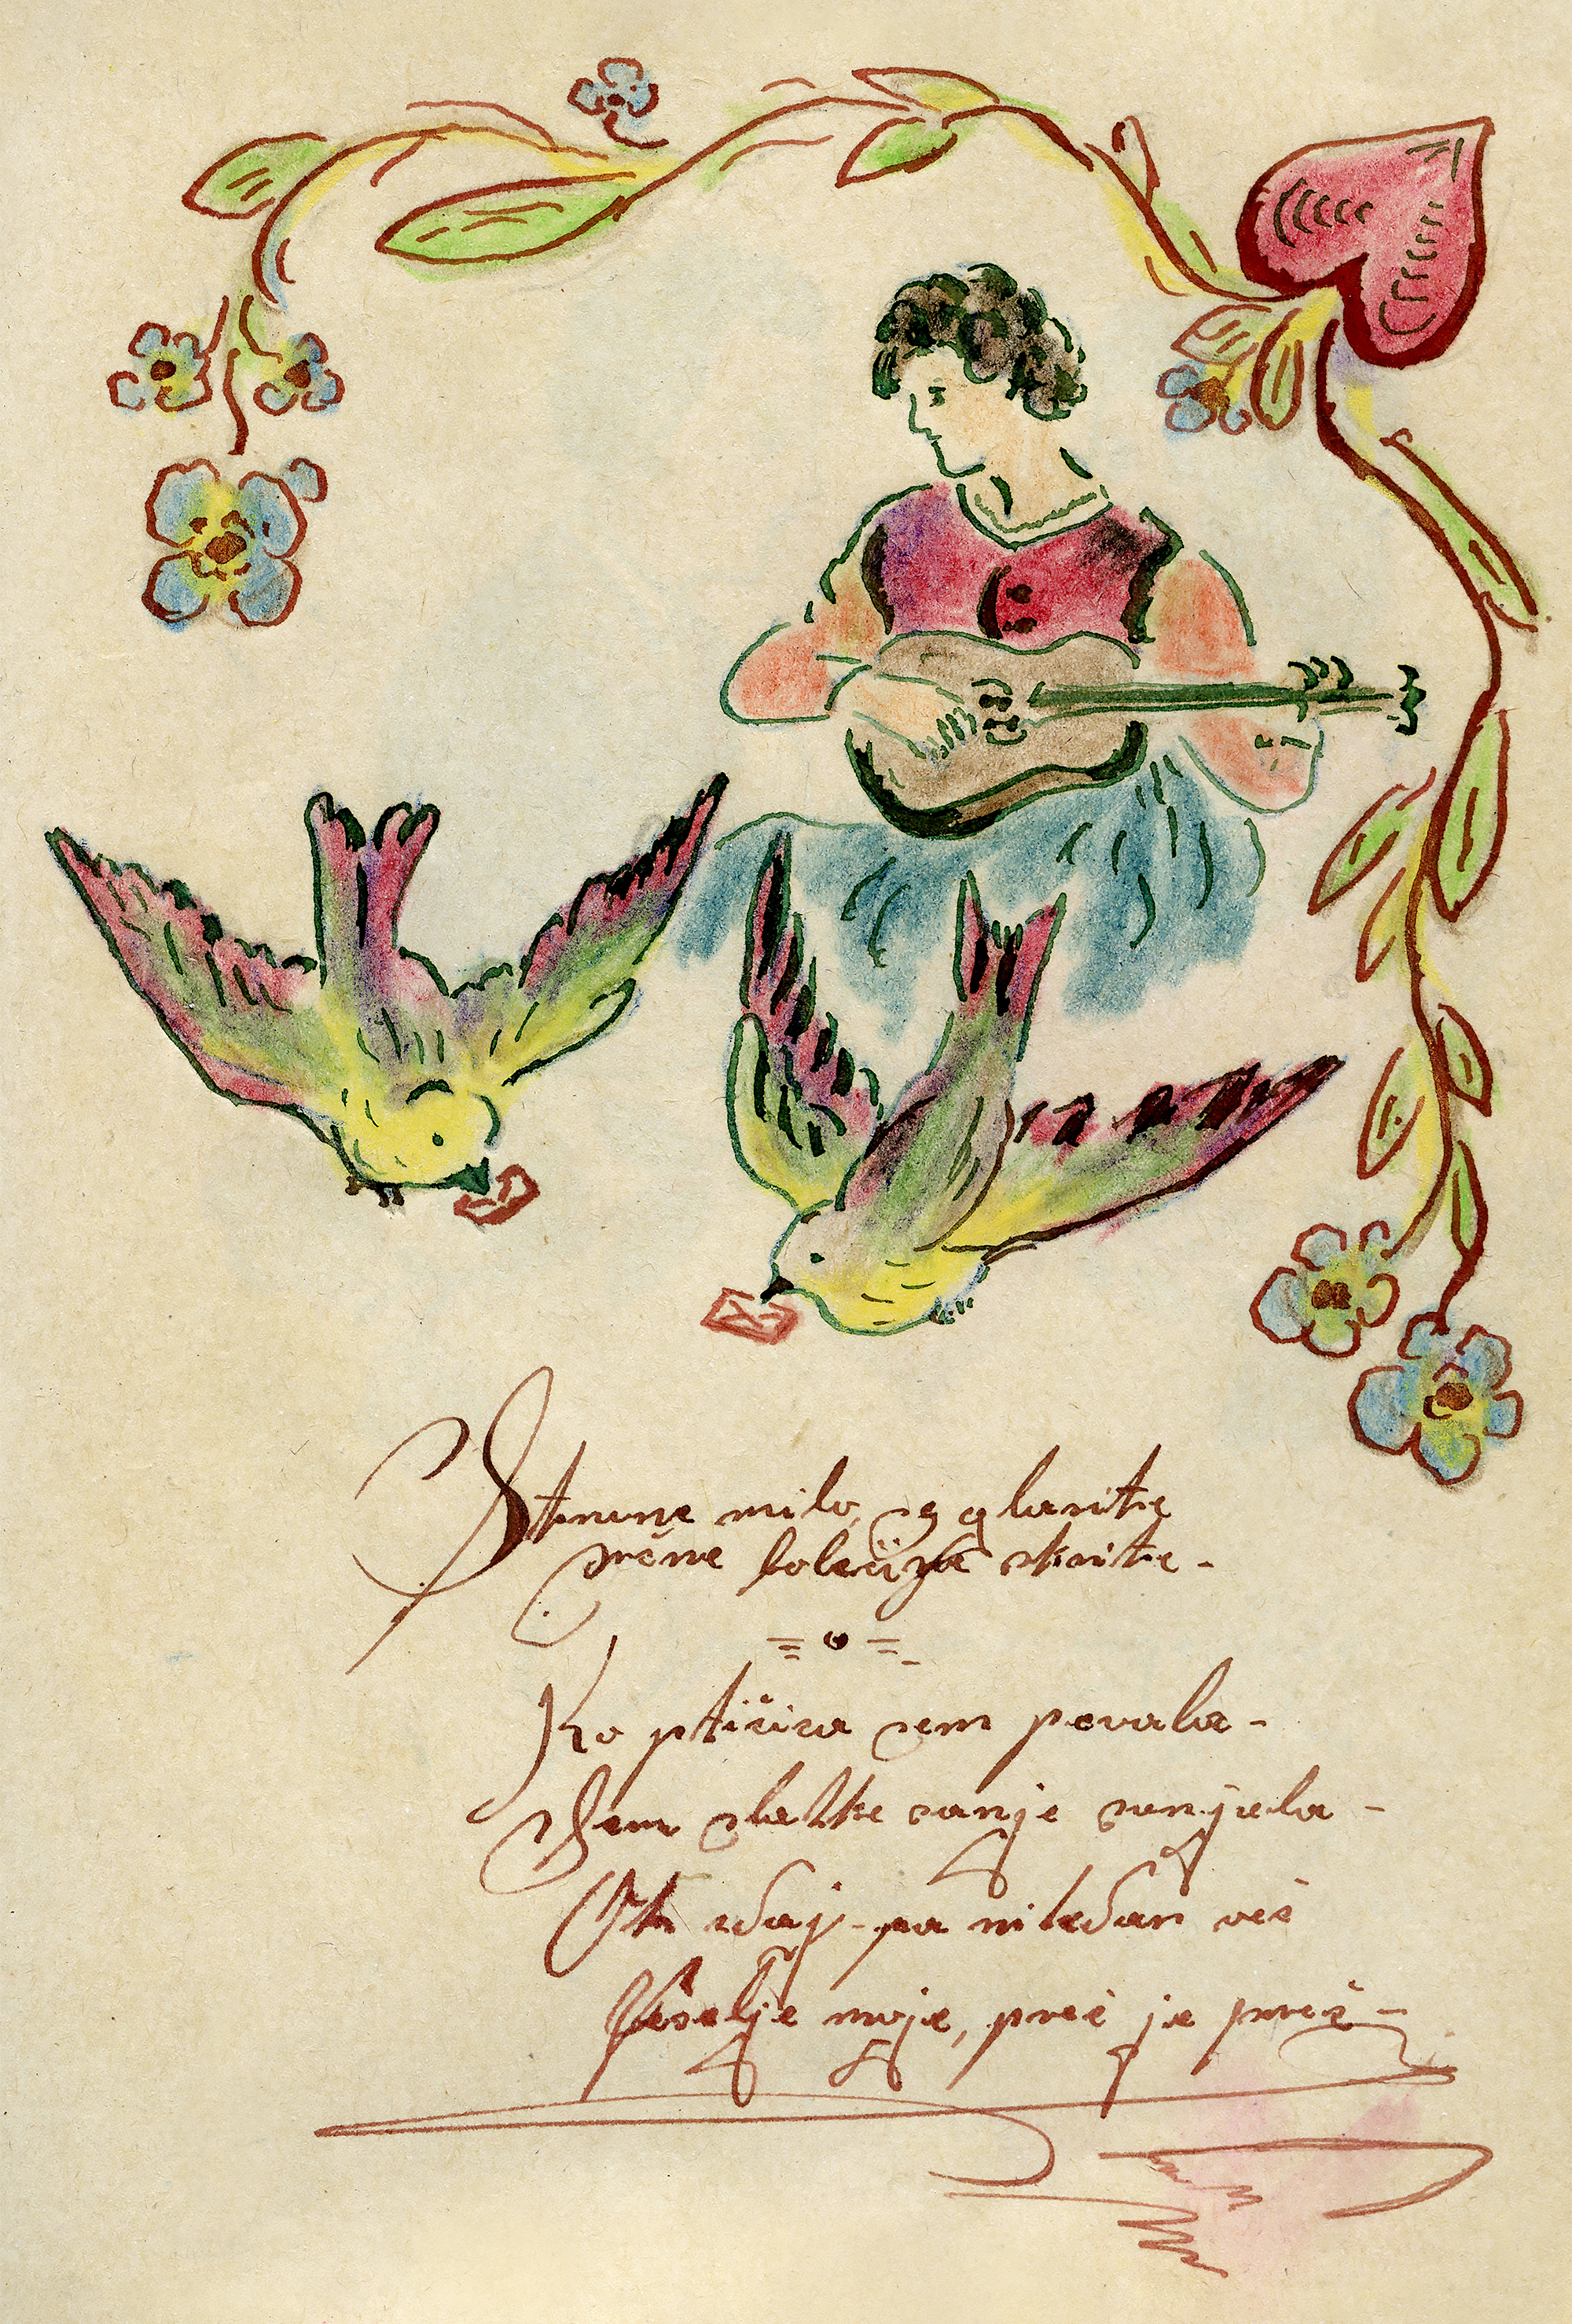 Strune milo se glasite
srčne bolečine skrite -
Ko ptičica sem pevala -
Sem sladke sanje sanjala -
Oh zdaj pa nikdar več
Veselje moje, preč je preč -